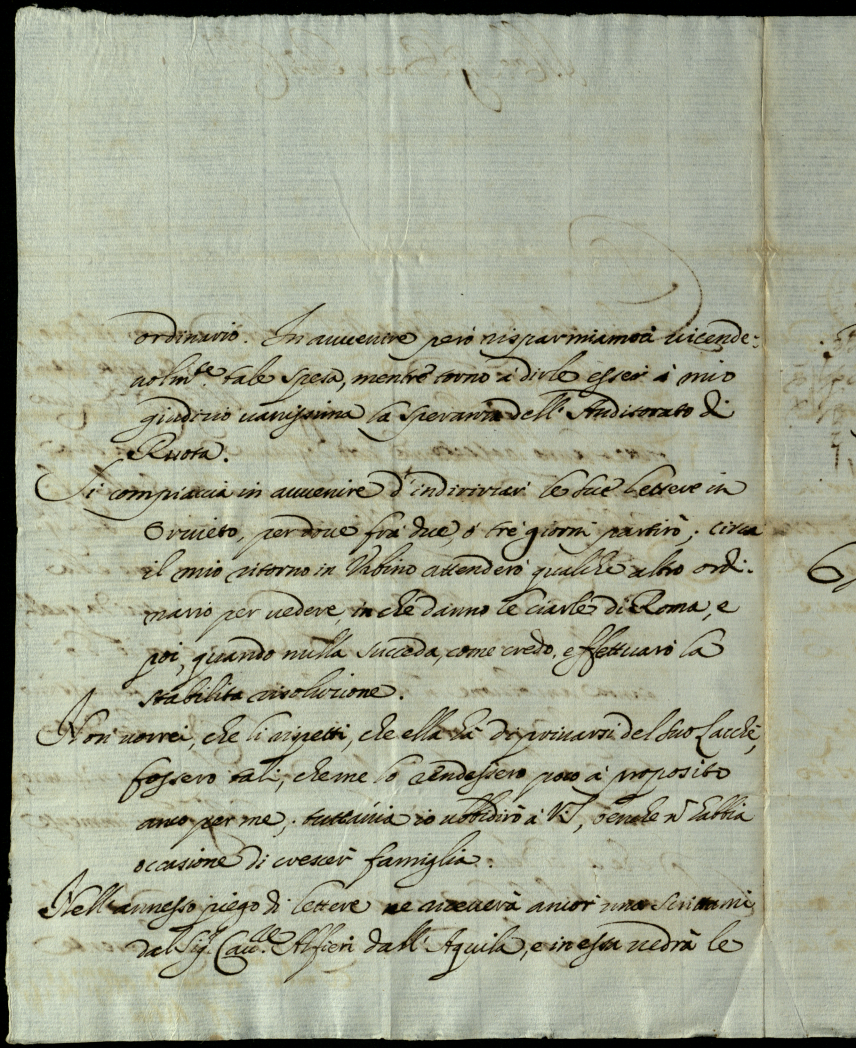 ordinario. In auuenire però risparmiamoci uicende:
uolm.te tale spesa, mentre torno à dirle esser à mio
giudizio uanissima la speranza dell' Auditorato di
Ruota.
Si compiaccia in auuenire d'indirizzar le sue lettere in
Oruieto, per doue frà due, ò tré giorni partirò; circa
il mio ritorno in Vrbino attenderò qualche altro ordi:
nario per uedere, in che danno le ciarle di Roma, e
poi, quando nulla succeda, come credo, effettuarò la
stabilita risoluzione.
Non uorrei, che li rispetti, che ella hà di priuarsi del suo Lacchè,
fossero tali, che me lo rendessero poco à proposito
anco per me; tuttauia io ubbidirò à V.S., benche ñ habbia
occasione di crescer famiglia.
Nell'annesso piego di lettere ne riceuerà ancor una scrittami
dal Sig.r Cau.re Alfieri dall'Aquila, e in essa uedrà le